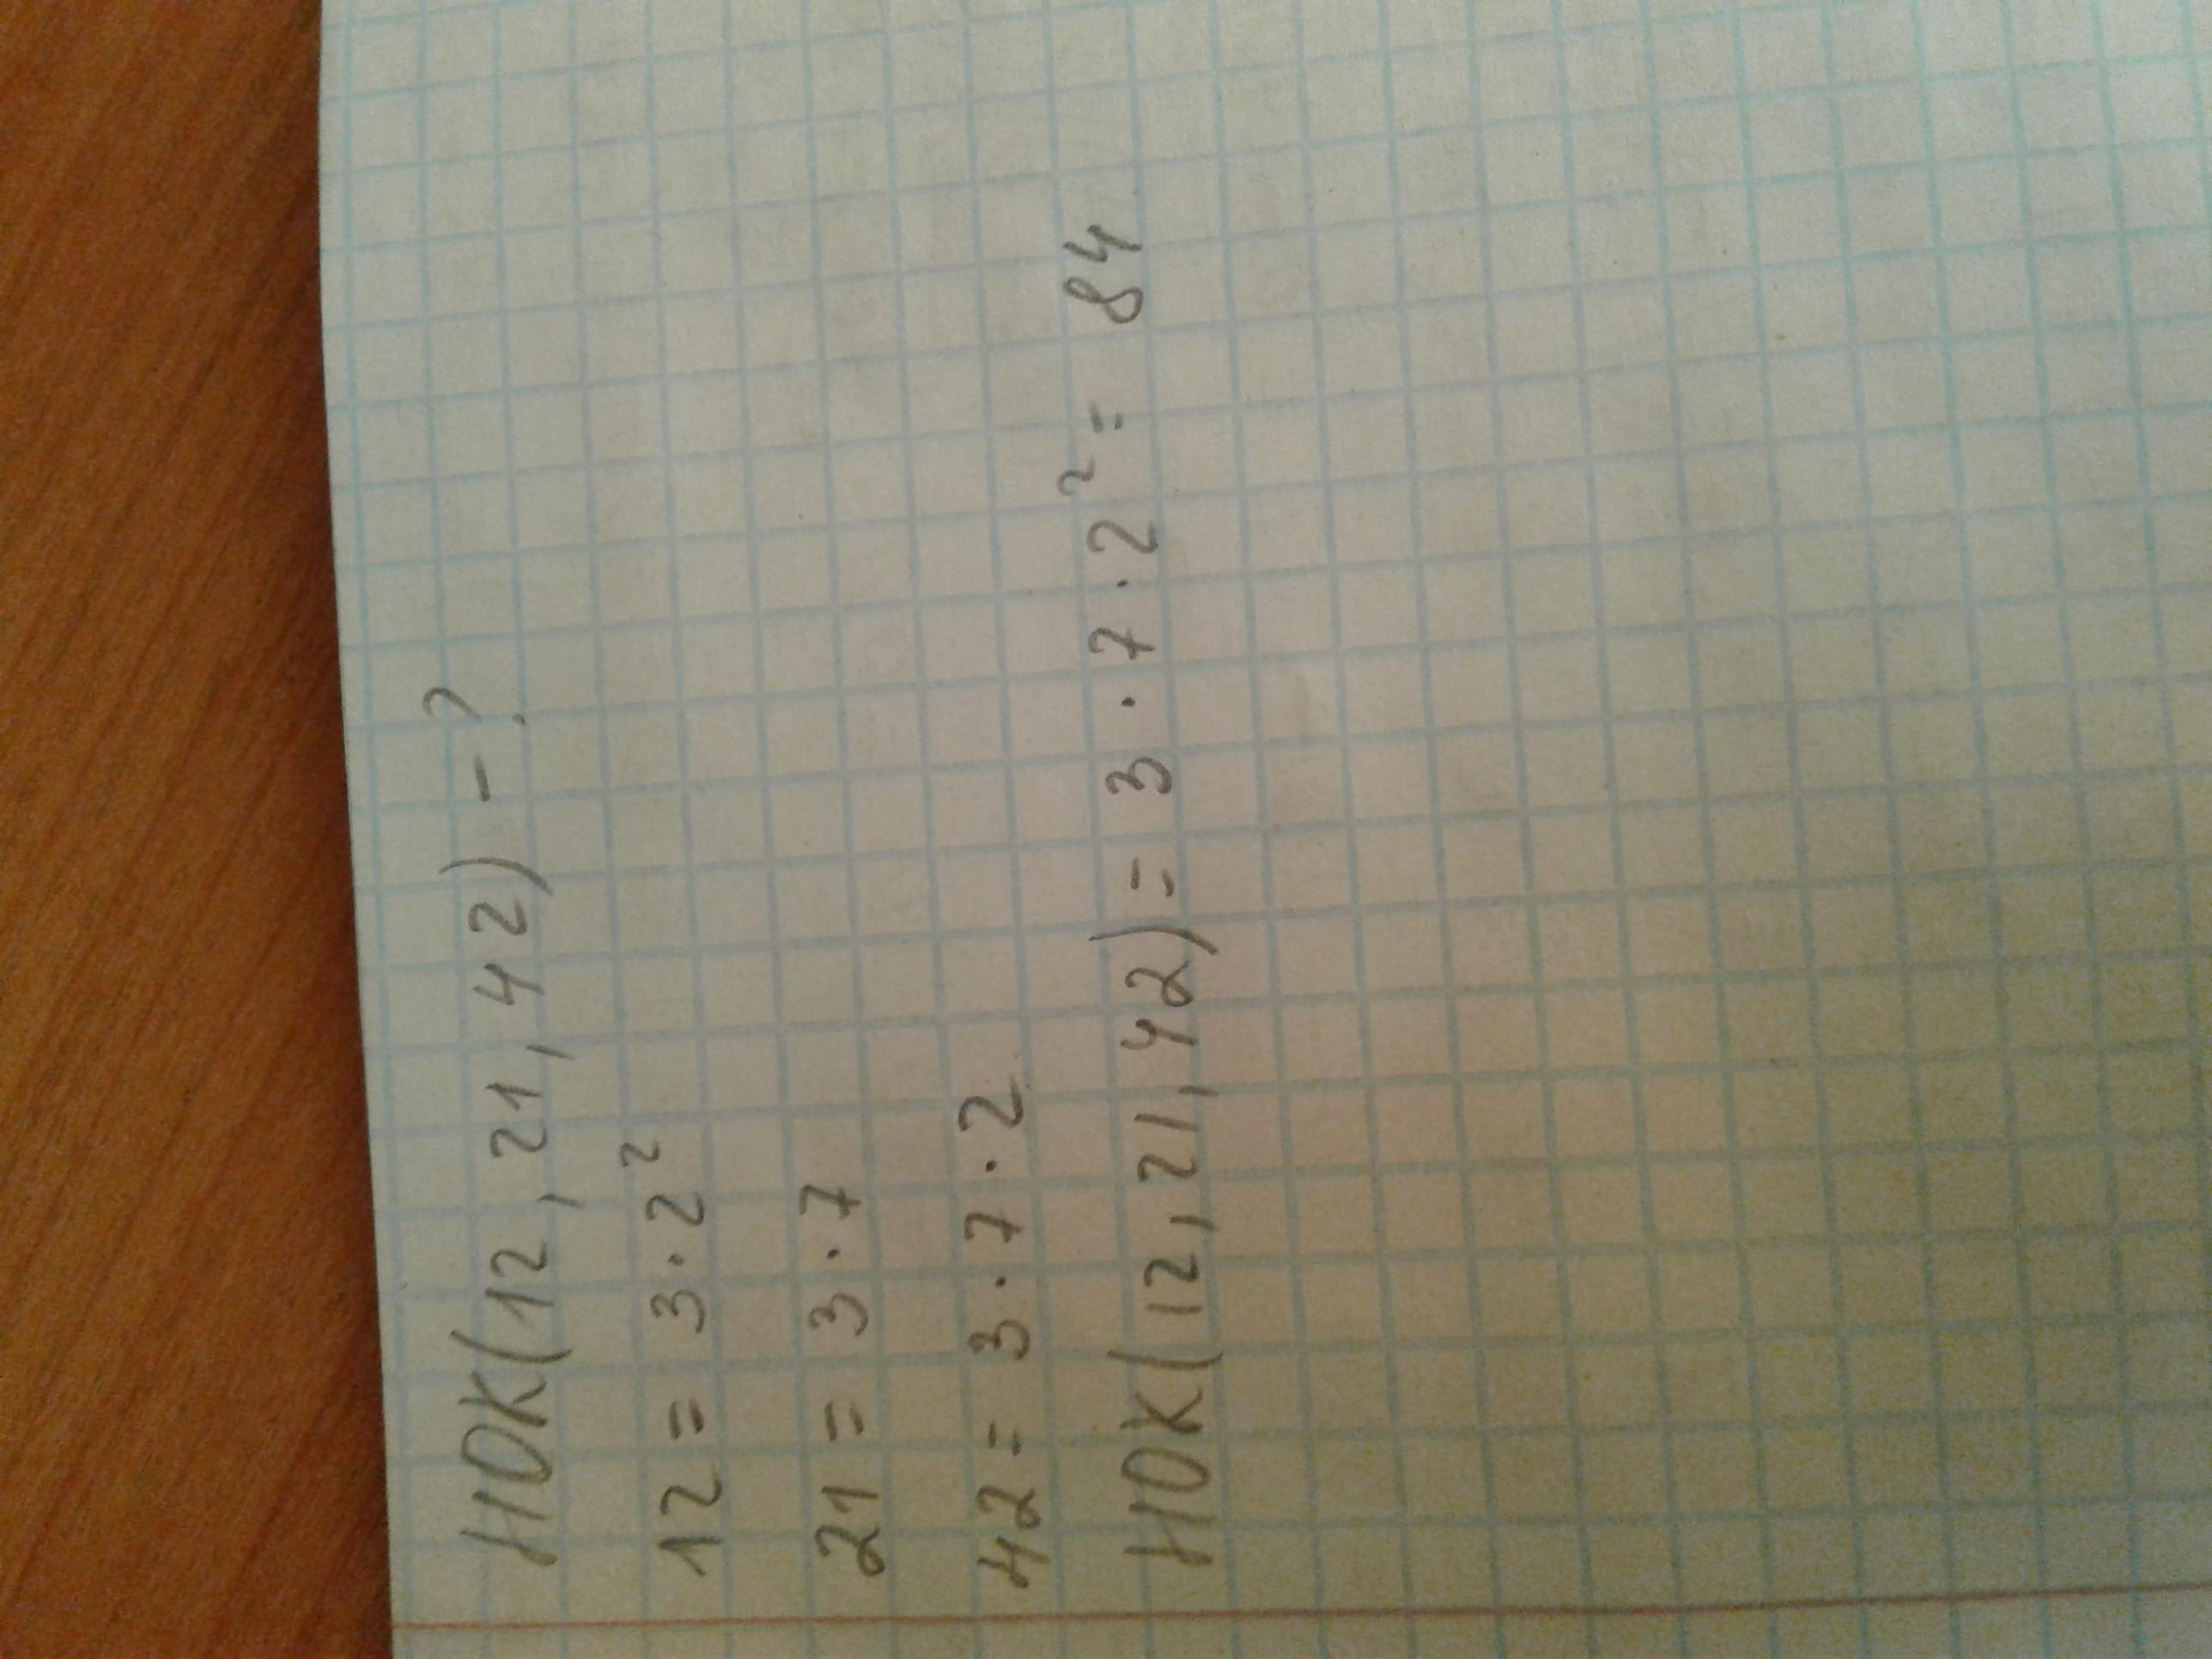 НОК(12, 21, 42) - ?
12 = 3 · 2²
21 = 3 · 7
42 = 3 · 7 · 2
НОК(12, 21, 42) = 3 · 7 · 2² = 84